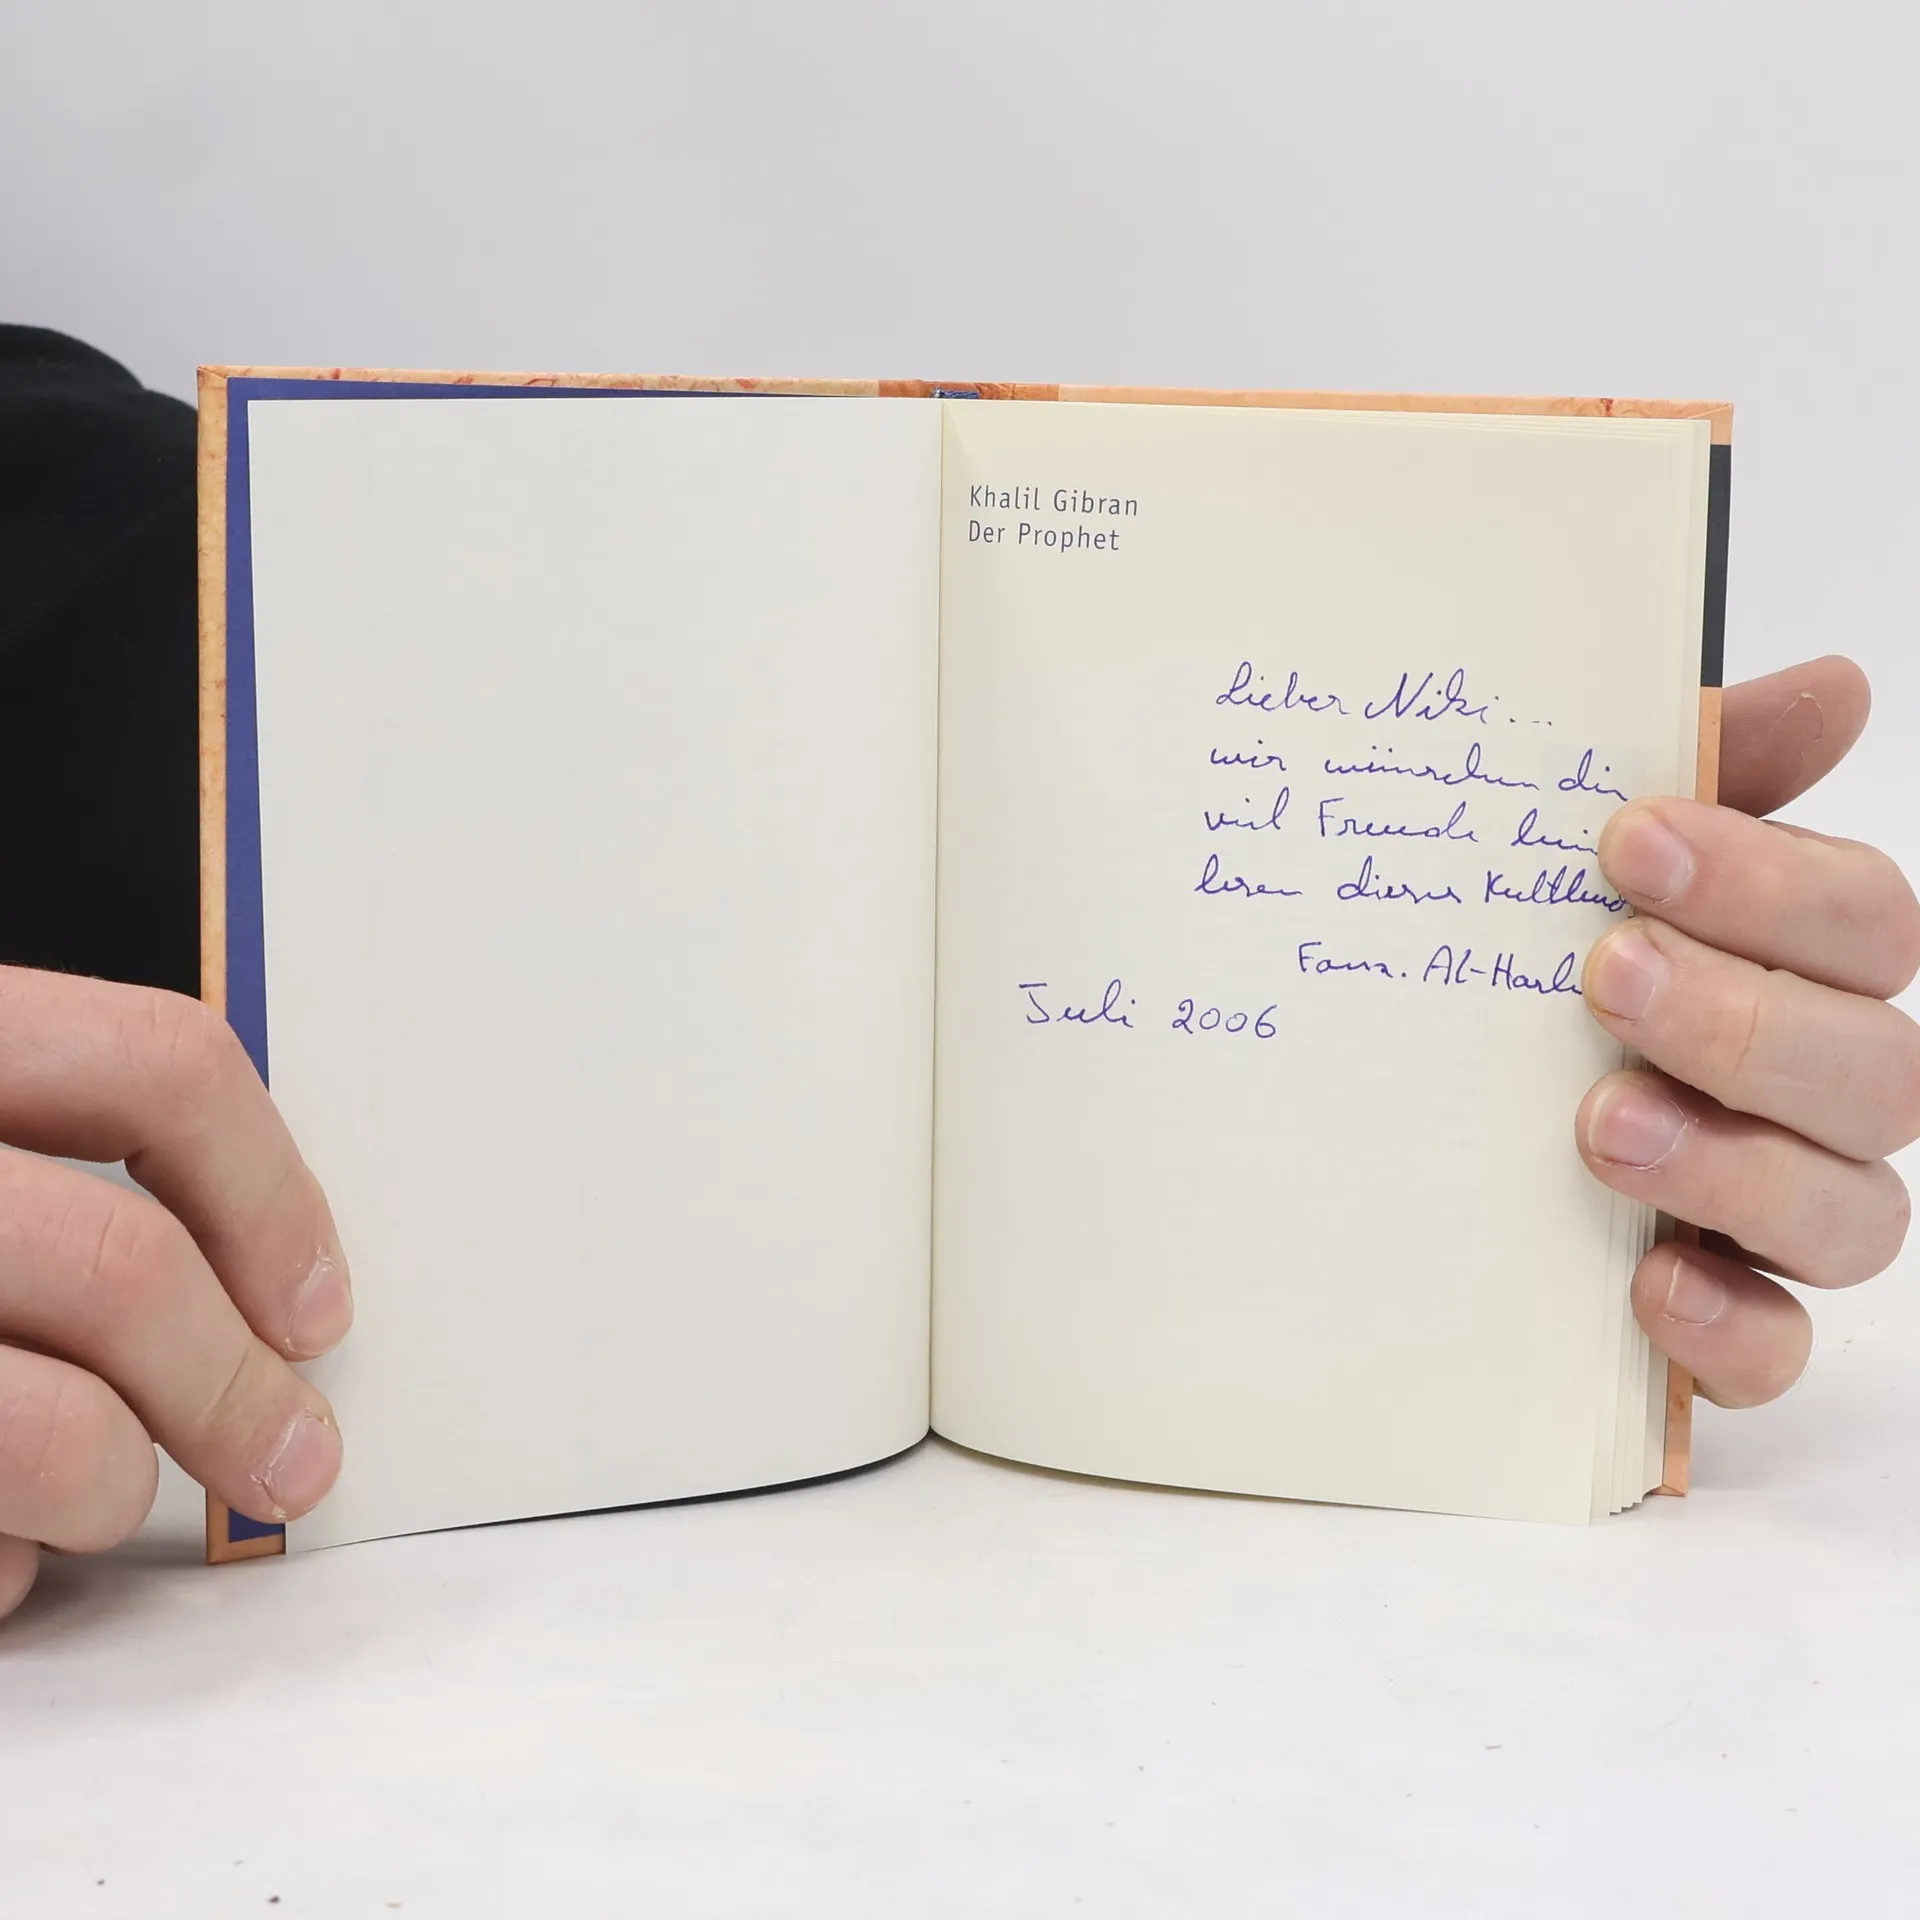 Khalil Gibran
Der Prophet
Lieber Niki...
wir wünschen dir
viel Freude beim
lesen dieses Kultbuc
Fam. Al-Harb
Juli 2006